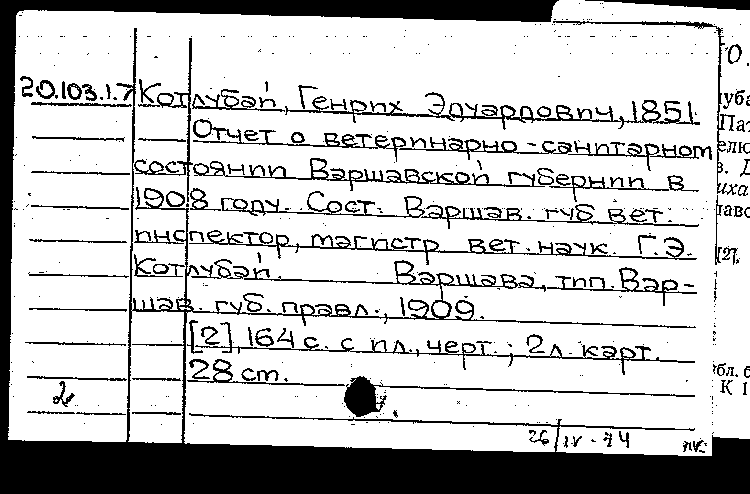 20.103.1.7 Котлубай, Генрих Эдуардович, 1851.
Отчет о ветеринарно-санитарном
состоянии Варшавской губернии в
1908 году. Сост. Варшав. губ вет.
инспектор, магистр вет. наук. Г.Э.
Котлубай. Варшава, тип. Вар-
шав. губ. правл., 1909.
[2], 164 с. с ил., черт.; 2 л. карт.
28 cm.
2
26/IV-74